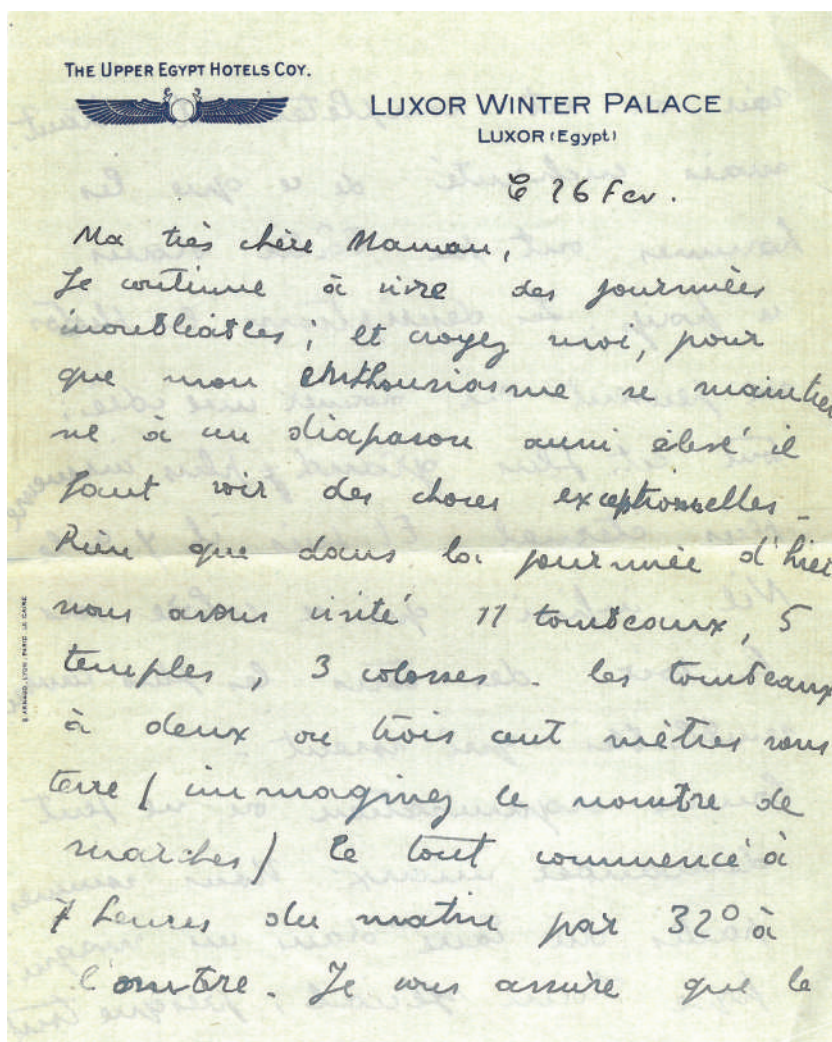 THE UPPER EGYPT HOTELS COY.
LUXOR WINTER PALACE
LUXOR (Egypt)
Le 26 Fev.
Ma très chère Maman,
Je continue à vivre des journées
inoubliables ; et croyez moi, pour
que mon enthousiasme se maintien
ne à un diapason aussi élevé il
faut voir des choses exceptionnelles -
Rien que dans la journée d'hier
nous avons visité 11 tombeaux, 5
temples, 3 colosses. les tombeaux
à deux ou trois cent mètres sous
terre / immaginez le nombre de
marches / Le tout commencé à
7 heures du matin par 32° à
l'ombre. Je vous assure que le